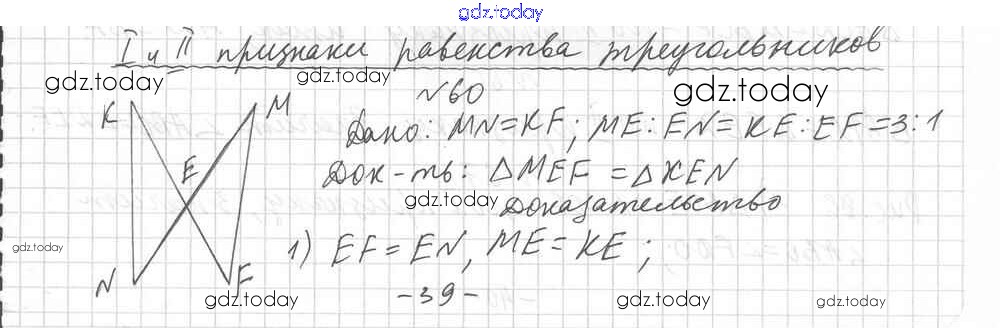 gdz.today
I и II признаки равенства треугольников
gdz.today
gdz.today
№60
gdz.today
K
M
Дано: MN=KF; ME:EN=KE:EF=3:1
E
Док-ть: △MEF=△KEN
gdz.today
Доказательство
gdz.today
1) EF=EN, ME=KE;
N
F
gdz.today
-39-
gdz.today
gdz.today